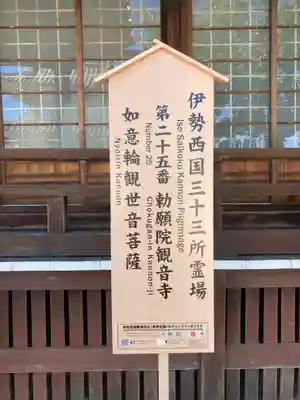 伊勢西国三十三所霊場
Ise Saikoku Kannon Pilgrimage
第二十五番 勅願院観音寺
Number 25 Chokugan-in Kannon-ji
如意輪観世音菩薩
Nyoirin Kannon